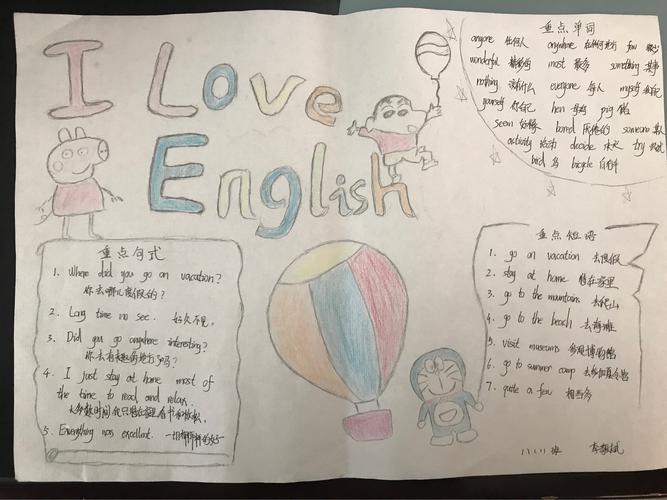 I Love
English
重点单词
anyone 任何人 anywhere 在任何地方 few 很少
wonderful 精彩的 most 最多 something 某事
nothing 没有什么 everyone 每人 myself 我自己
yourself 你自己 hen 母鸡 pig 猪
seem 好像 bored 厌倦的 someone 某人
activity 活动 decide 决定 try 尝试
bird 鸟 bicycle 自行车
重点句式
1. Where did you go on vacation?
你去哪儿度假的?
2. Long time no see. 好久不见。
3. Did you go anywhere interesting?
你去有趣的地方了吗?
4. I just stay at home most of
the time to read and relax.
大多数时间我只待在家里看书和放松。
5. Everything was excellent. 一切都那样的好
重点短语
1. go on vacation 去度假
2. stay at home 待在家里
3. go to the mountains 去爬山
4. go to the beach 去海滩
5. visit museums 参观博物馆
6. go to summer camp 去参加夏令营
7. quite a few 相当多
班 李